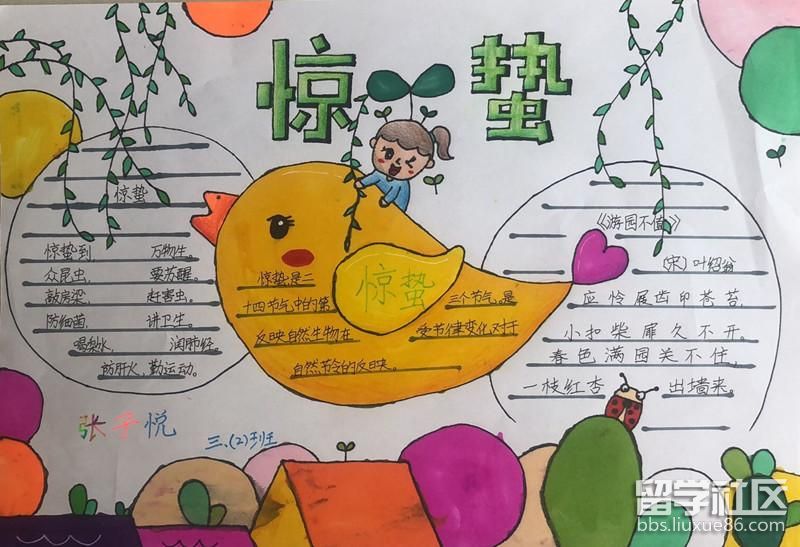 惊蛰
惊蛰
惊蛰到 万物生。
众昆虫, 要苏醒。
敲房梁, 赶害虫。
防细菌, 讲卫生。
喝梨水, 润肺经。
防肝火,勤运动。
惊蛰是二
十四节气中的第 三个节气。是
反映自然生物在 受节律变化对于
自然节令的反映。
惊蛰
《游园不值》
(宋)叶绍翁
应怜屐齿印苍苔,
小扣柴扉久不开。
春色满园关不住,
一枝红杏 出墙来。
张子悦
三、(2)班
留学社区
bbs.liuxue86.com